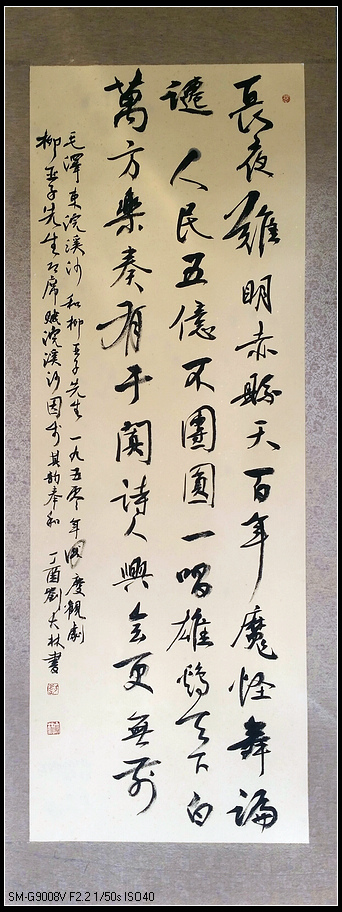 長夜難明赤縣天百年魔怪舞翩
躚人民五億不團圓一唱雄鷄天下白
萬方樂奏有于闐詩人興會更無前
毛澤東浣溪沙和柳亞子先生一九五零年國慶觀劇
柳亞子先生即席賦浣溪沙因步其韵奉和 丁酉劉大林書
SM-G9008V F2.2 1/50s ISO40